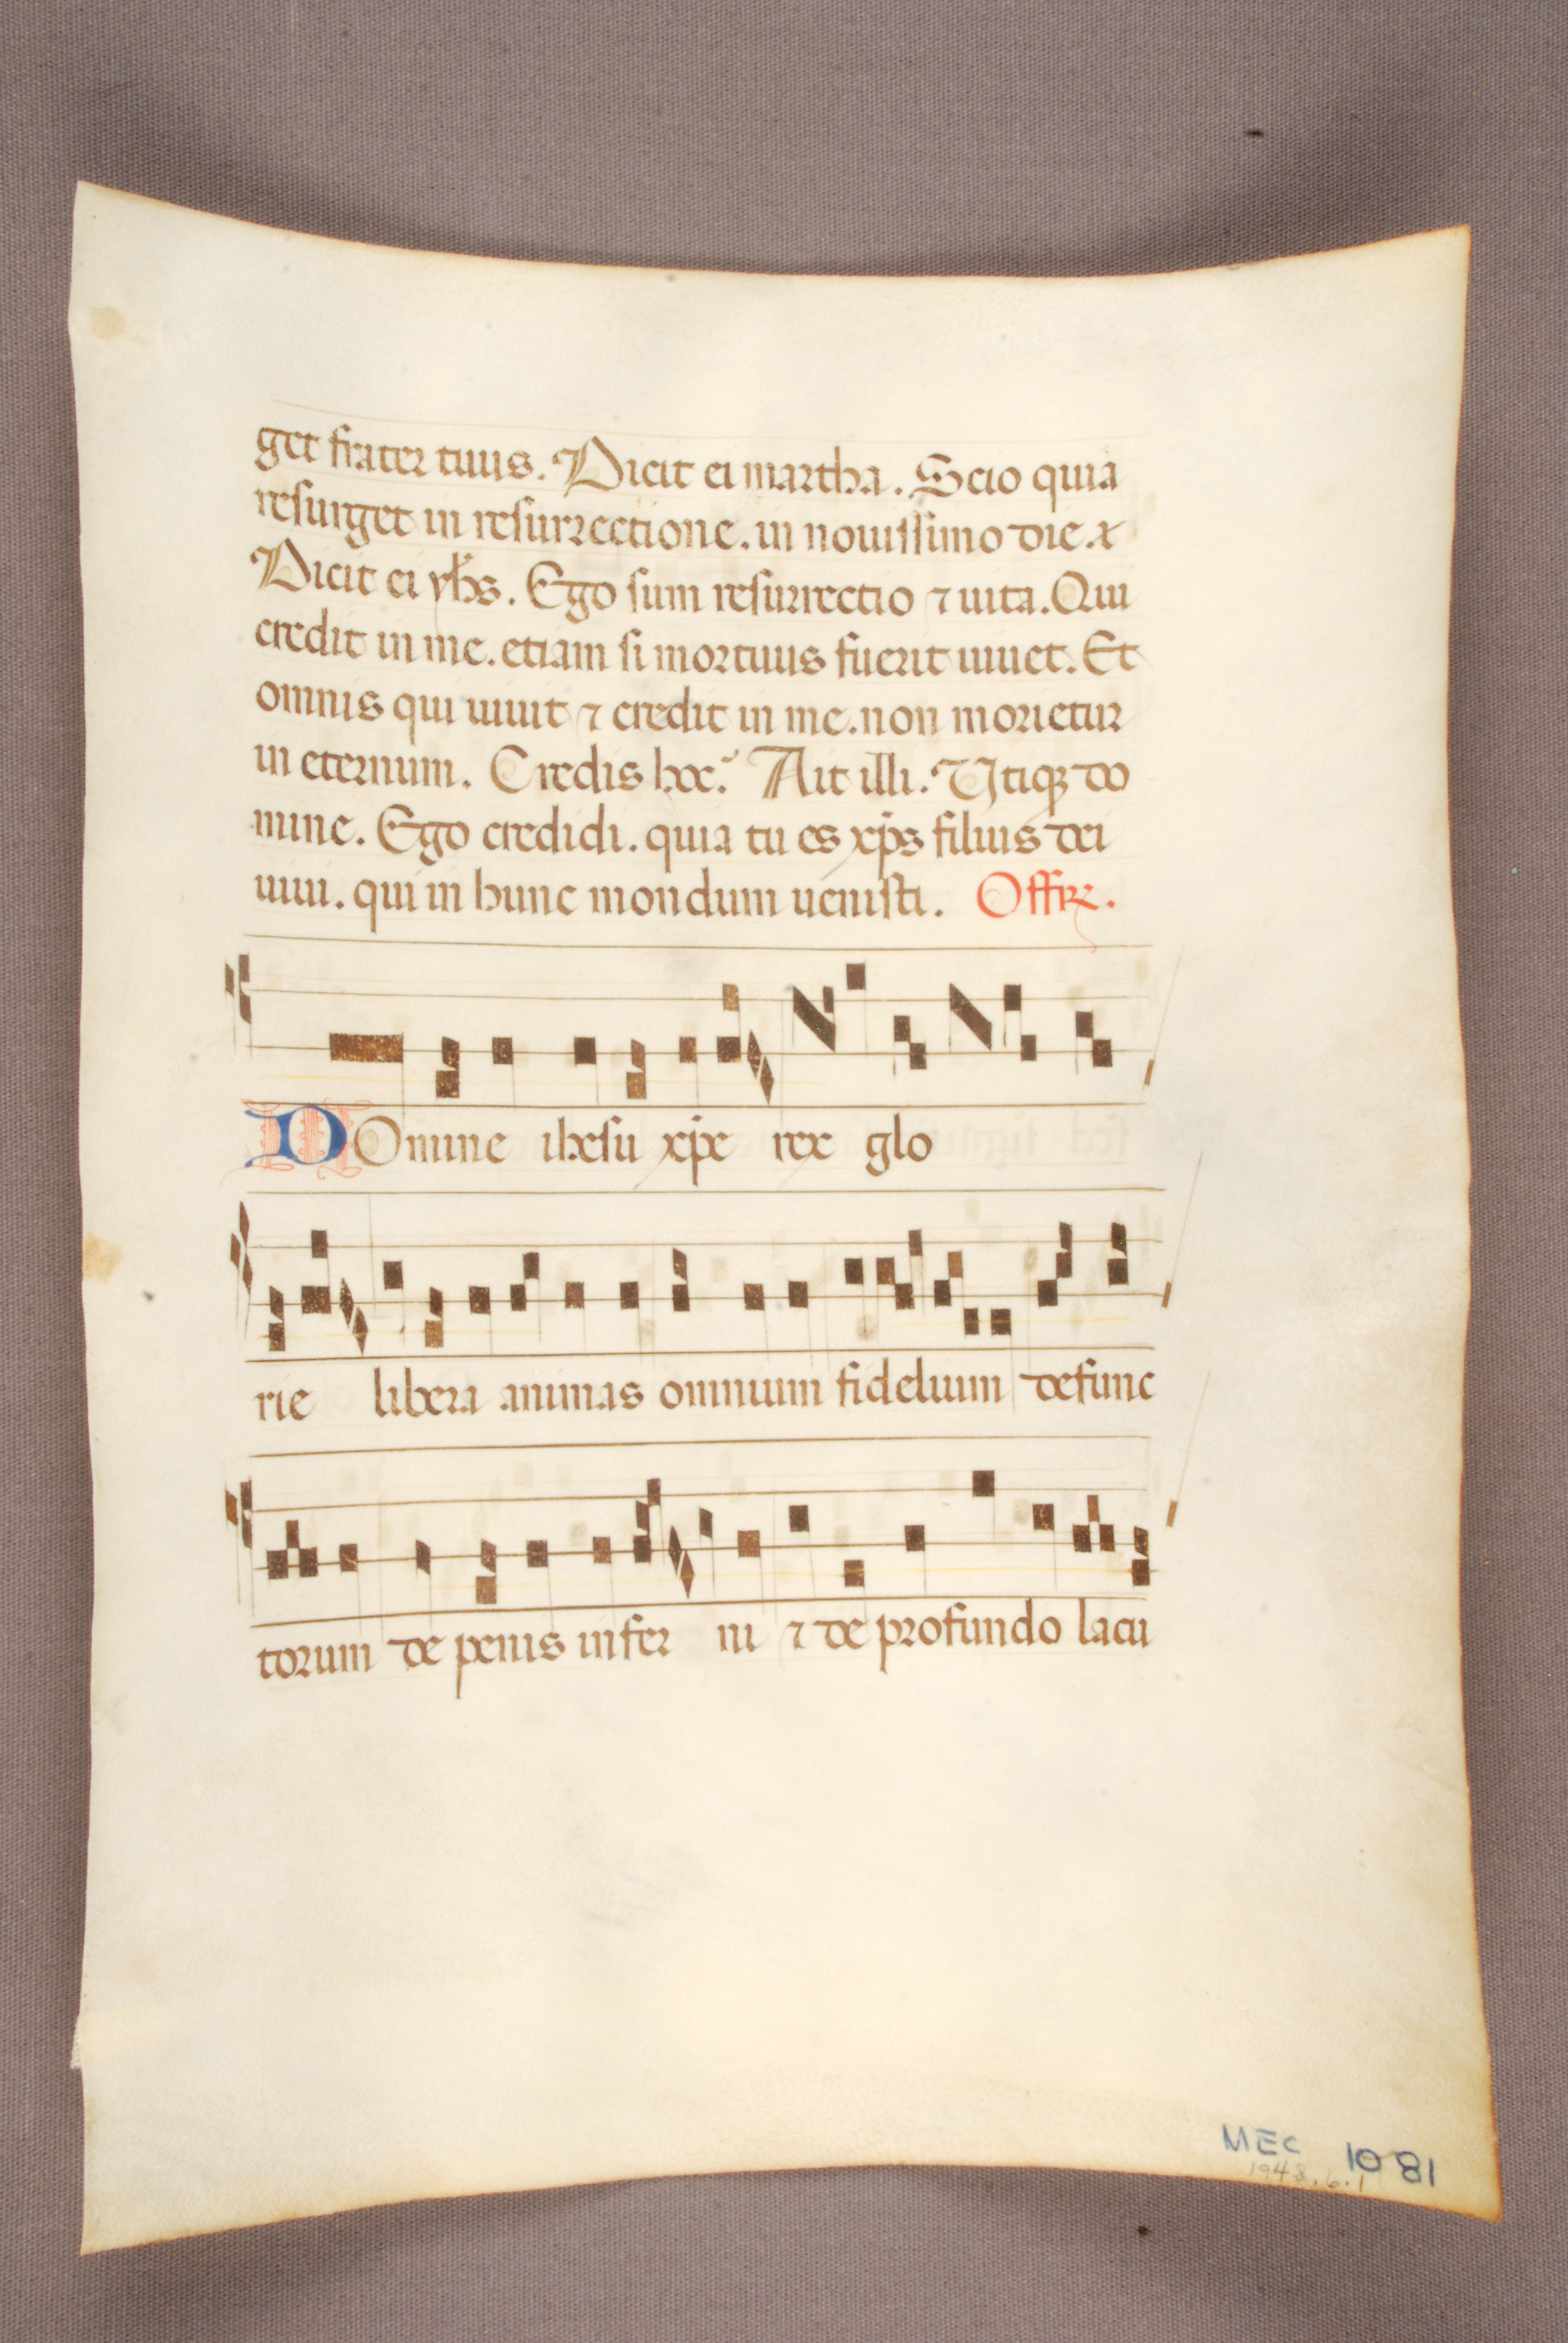 get frater tuus. Dicit ei martha. Scio quia
resurget in resurrectione. in nouissimo die. x
Dicit ei yhs. Ego sum resurrectio ⁊ uita. Qui
credit in me. etiam si mortuus fuerit uiuet. Et
omnis qui uiuit ⁊ credit in me. non morietur
in eternum. Credis hoc? Ait illi. Utiqꝫ do
mine. Ego credidi. quia tu es xp̄s filius dei
uiui. qui in hunc mondum uenisti. Offiꝝ.
Domine ihesu xp̄e rex glo
rie libera animas omnium fidelium defunc
torum de penis infer ni ⁊ de profundo lacu
MEC 1081
1948.6.1